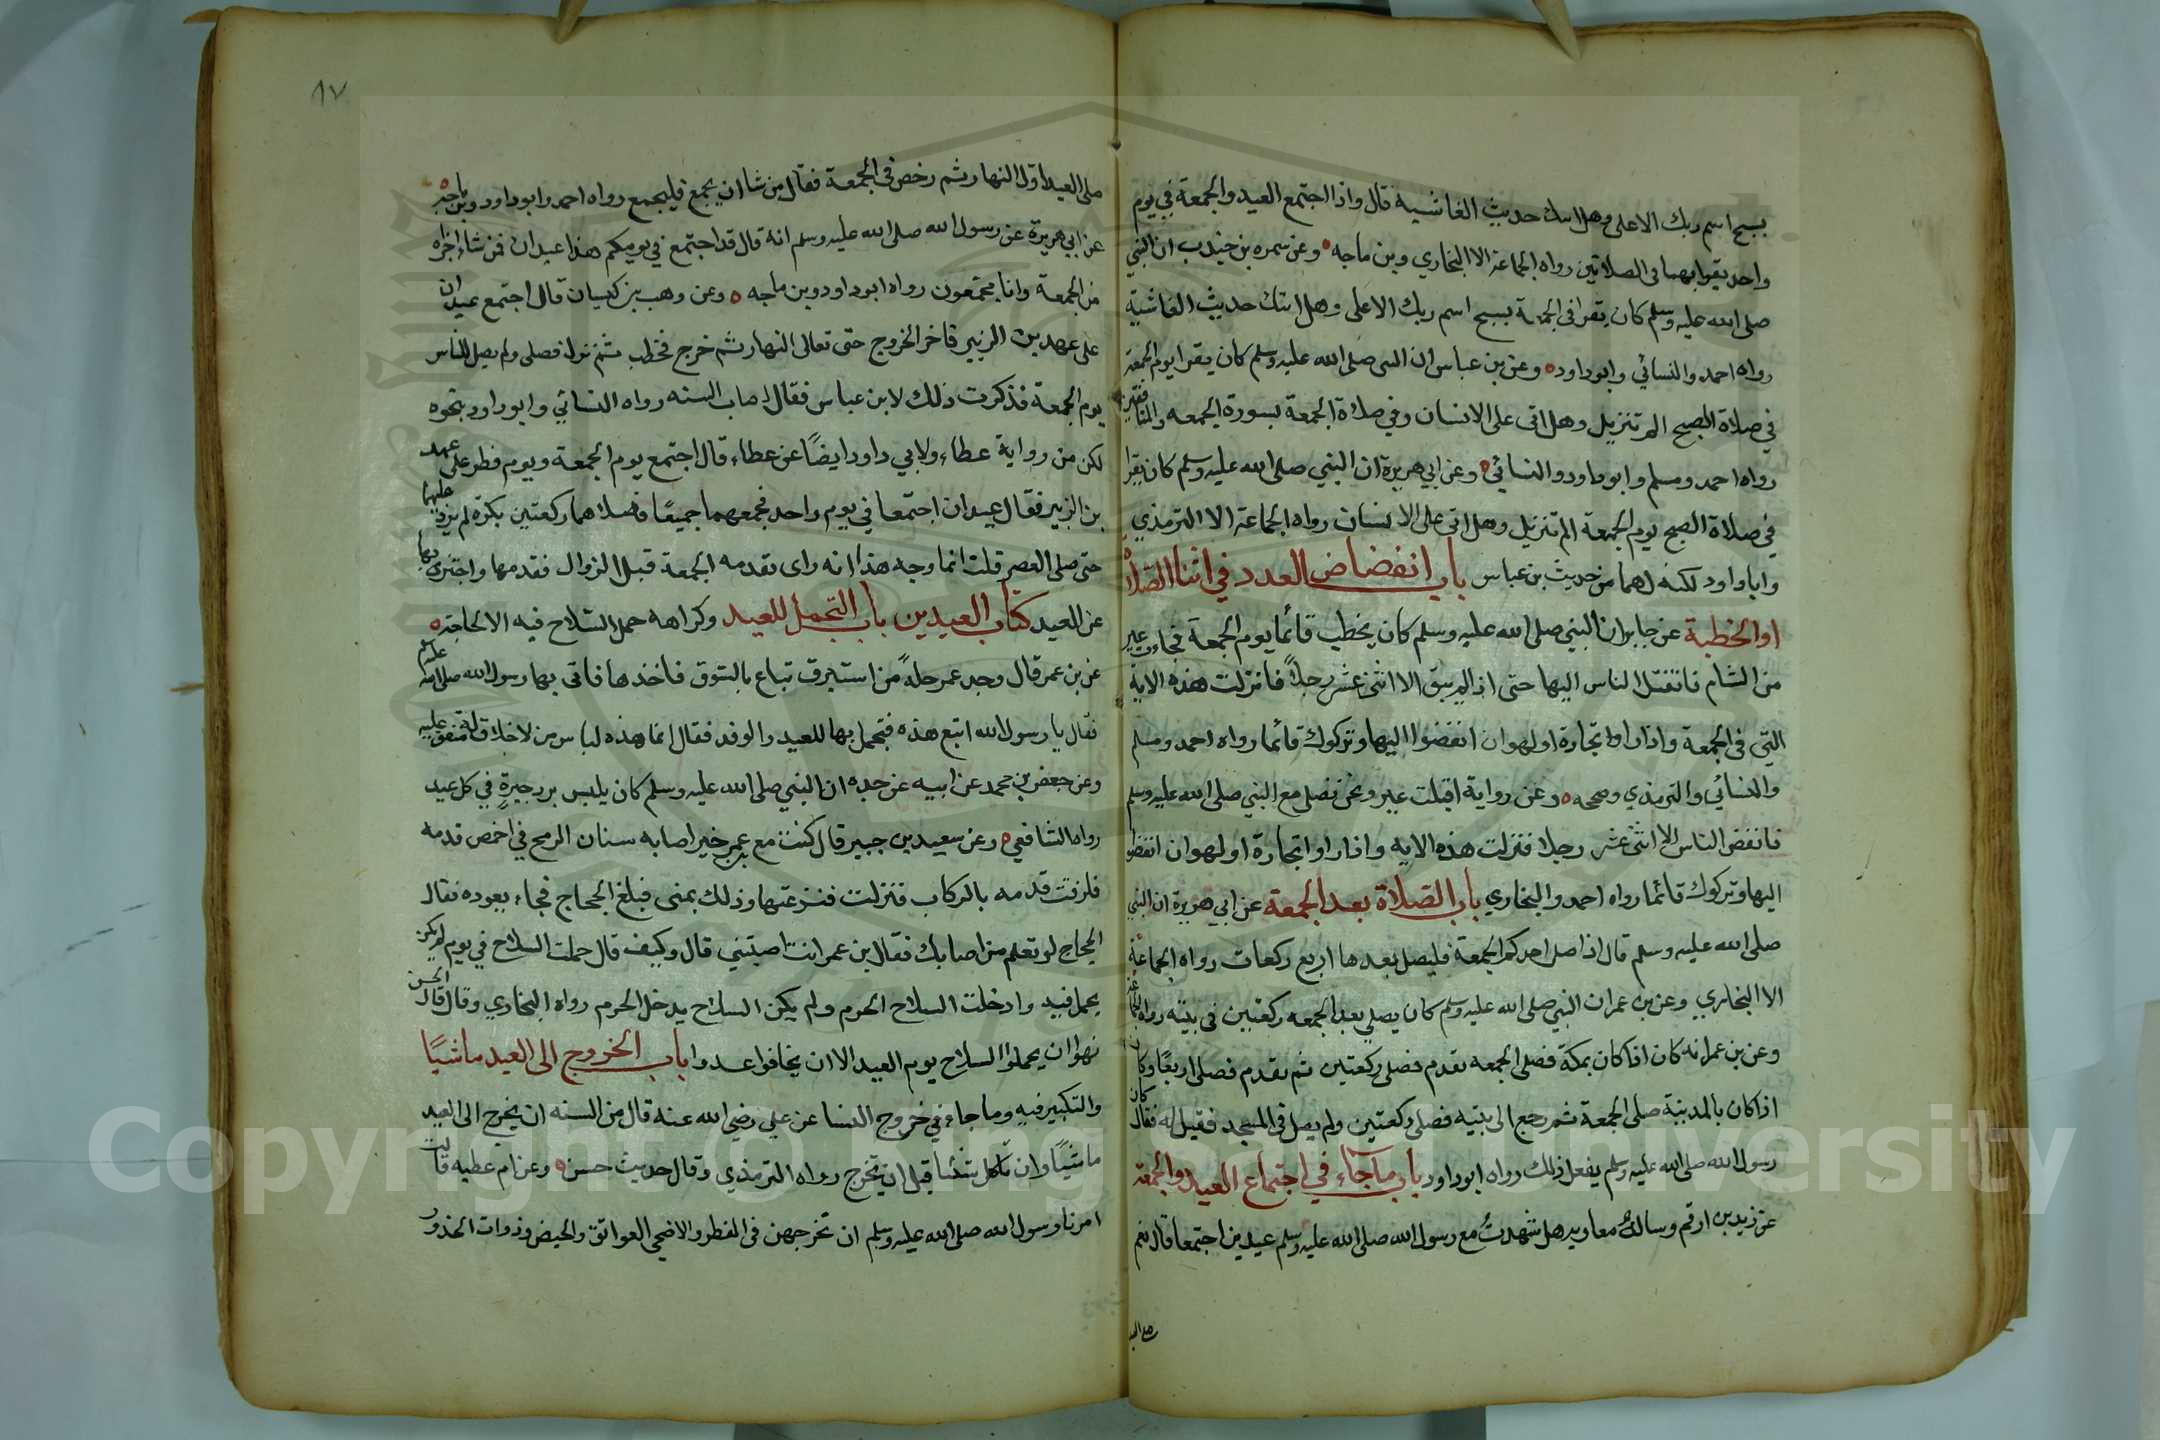 بسبح اسم ربك الاعلى وهل اتيك حديث الغاشية قال واذا اجتمع العيد والجمعة في يوم
واحد يقرا بهما في الصلاتين رواه الجماعة الا البخاري وبن ماجه وعن سمره بن جندب ان النبي
صلى الله عليه وسلم كان يقرا في الجمعة بسبح اسم ربك الاعلى وهل اتك حديث الغاشية
رواه احمد والنسائي وابو داود وعن بن عباس ان النبي صلى الله عليه وسلم كان يقرا يوم الجمعة
في صلاة الصبح الم تنزيل وهل اتى على الانسان وفي صلاة الجمعة بسورة الجمعه والمنافقين
رواه احمد ومسلم وابو داود والنسائي وعن ابي هريرة ان النبي صلى الله عليه وسلم كان يقرا
في صلاة الصبح يوم الجمعة الم تنزيل وهل اتى على الانسان رواه الجماعة الا الترمذي
وابا داود لكنه لهما من حديث بن عباس باب انفضاض العدد في اثنا الصلاة
او الخطبة عن جابر ان النبي صلى الله عليه وسلم كان يخطب قائما يوم الجمعة فجاءت عير
من الشام فانفتل الناس اليها حتى اذا لم يبق الا اثني عشر رجلاً فانزلت هذه الاية
التي في الجمعة واذا راوا تجارة او لهوا ن انفضوا اليها وتركوك قائما رواه احمد ومسلم
والنسائي والترمذي وصححه وعن رواية اقبلت عير ونحن نصلي مع النبي صلى الله عليه وسلم
فانفض الناس الا اثنى عشر رجلا فنزلت هذه الايه واذا راوا تجارة او لهوا ن انفضوا
اليها وتركوك قائما رواه احمد والبخاري باب الصلاة بعد الجمعة عن ابي هريرة ان النبي
صلى الله عليه وسلم قال اذا صلى احدكم الجمعة فليصل بعدها اربع ركعات رواه الجماعة
الا البخاري وعن بن عمر ان النبي صلى الله عليه وسلم كان يصلي بعد الجمعه ركعتين في بيته رواه الجماعة
وعن بن عمر انه كان اذا كان بمكة فصلى الجمعه تقدم فصلى ركعتين ثم تقدم فصلى اربعًا وكان
اذا كان بالمدينة صلى الجمعة ثم رجع الى بيته فصلى ركعتين ولم يصل في المسجد فقيل له فقال كان
رسول الله صلى الله عليه وسلم يفعل ذلك رواه ابو داود باب ما جاء في اجتماع العيد والجمعة
عن زيد بن ارقم وساله معاويه هل شهدت مع رسول الله صلى الله عليه وسلم عيدين اجتمعا قال نعم
صلى العيد
٨٧
صلى العيد اول النهار ثم رخص في الجمعة فقال من شا ان يجمع فليجمع رواه احمد وابو داود وبن ماجه
عن ابي هريرة عن رسول الله صلى الله عليه وسلم انه قال قد اجتمع في يومكم هذا عيدان فمن شاء اجزاه
من الجمعة وانا مجتمعون رواه ابو داود وبن ماجه وعن وهب بن كيسان قال اجتمع عيدان
على عهد بن الزبير فاخر الخروج حتى تعالى النهار ثم خرج فخطب ثم نزل فصلى ولم يصل للناس
يوم الجمعة فذكرت ذلك لابن عباس فقال اصاب السنه رواه النسائي وابو داود بنحوه
لكن من رواية عطاء ولابي داود ايضًا عن عطاء قال اجتمع يوم الجمعة ويوم فطر على عهد
بن الزبير فقال عيدان اجتمعا في يوم واحد فجمعهما جميعًا فصلاهما ركعتين بكرة لم يزد عليهما
حتى صلى العصر قلت انما وجه هذا انه راى تقدمه الجمعة قبل الزوال فقدمها واجتزى بها
عن العيد كتاب العيدين باب التجمل للعيد وكراهه حمل السلاح فيه الا لحاجة
عن بن عمر قال وجد عمر حلةً من استبرق تباع بالسوق فاخذها فاتى بها رسول الله صلى الله عليه
فقال يا رسول الله ابتع هذه فتجمل بها للعيد والوفد فقال انما هذه لباس من لا خلاق له متفق عليه
وعن جعفر بن محمد عن ابيه عن جده ان النبي صلى الله عليه وسلم كان يلبس برد حبرةٍ في كل عيد
رواه الشافعي وعن سعيد بن جبير قال كنت مع بن عمر حين اصابه سنان الرمح في اخمص قدمه
فلزقت قدمه بالركاب فنزلت فنزعتها وذلك بمنى فبلغ الحجاج فجاء يعوده فقال
الحجاج لو تعلم من اصابك فقال بن عمر انت اصبتني قال وكيف قال حملت السلاح في يوم لم يكن
يحمل فيه وادخلت السلاح الحرم ولم يكن السلاح يدخل الحرم رواه البخاري وقال قال الحسن
نهوا ان يحملوا السلاح يوم العيد الا ان يخافوا عدوا باب الخروج الى العيد ماشيًا
والتكبير فيه وما جاء في خروج النسا عن علي رضي الله عنه قال من السنه ان يخرج الى العيد
ماشيًا وان تاكل شيئا قبل ان تخرج رواه الترمذي وقال حديث حسن وعن ام عطيه قالت
امرنا رسول الله صلى الله عليه وسلم ان نخرجهن في الفطر والاضحى العواتق والحيض وذوات الخدور
Copyright © King Saud University